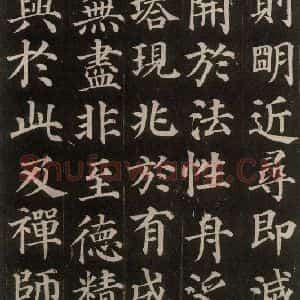 則眀近尋即滅
開於法性舟泛
塔現兆於有成
無盡非至德精
與於此及禪師
Shufawang.cn